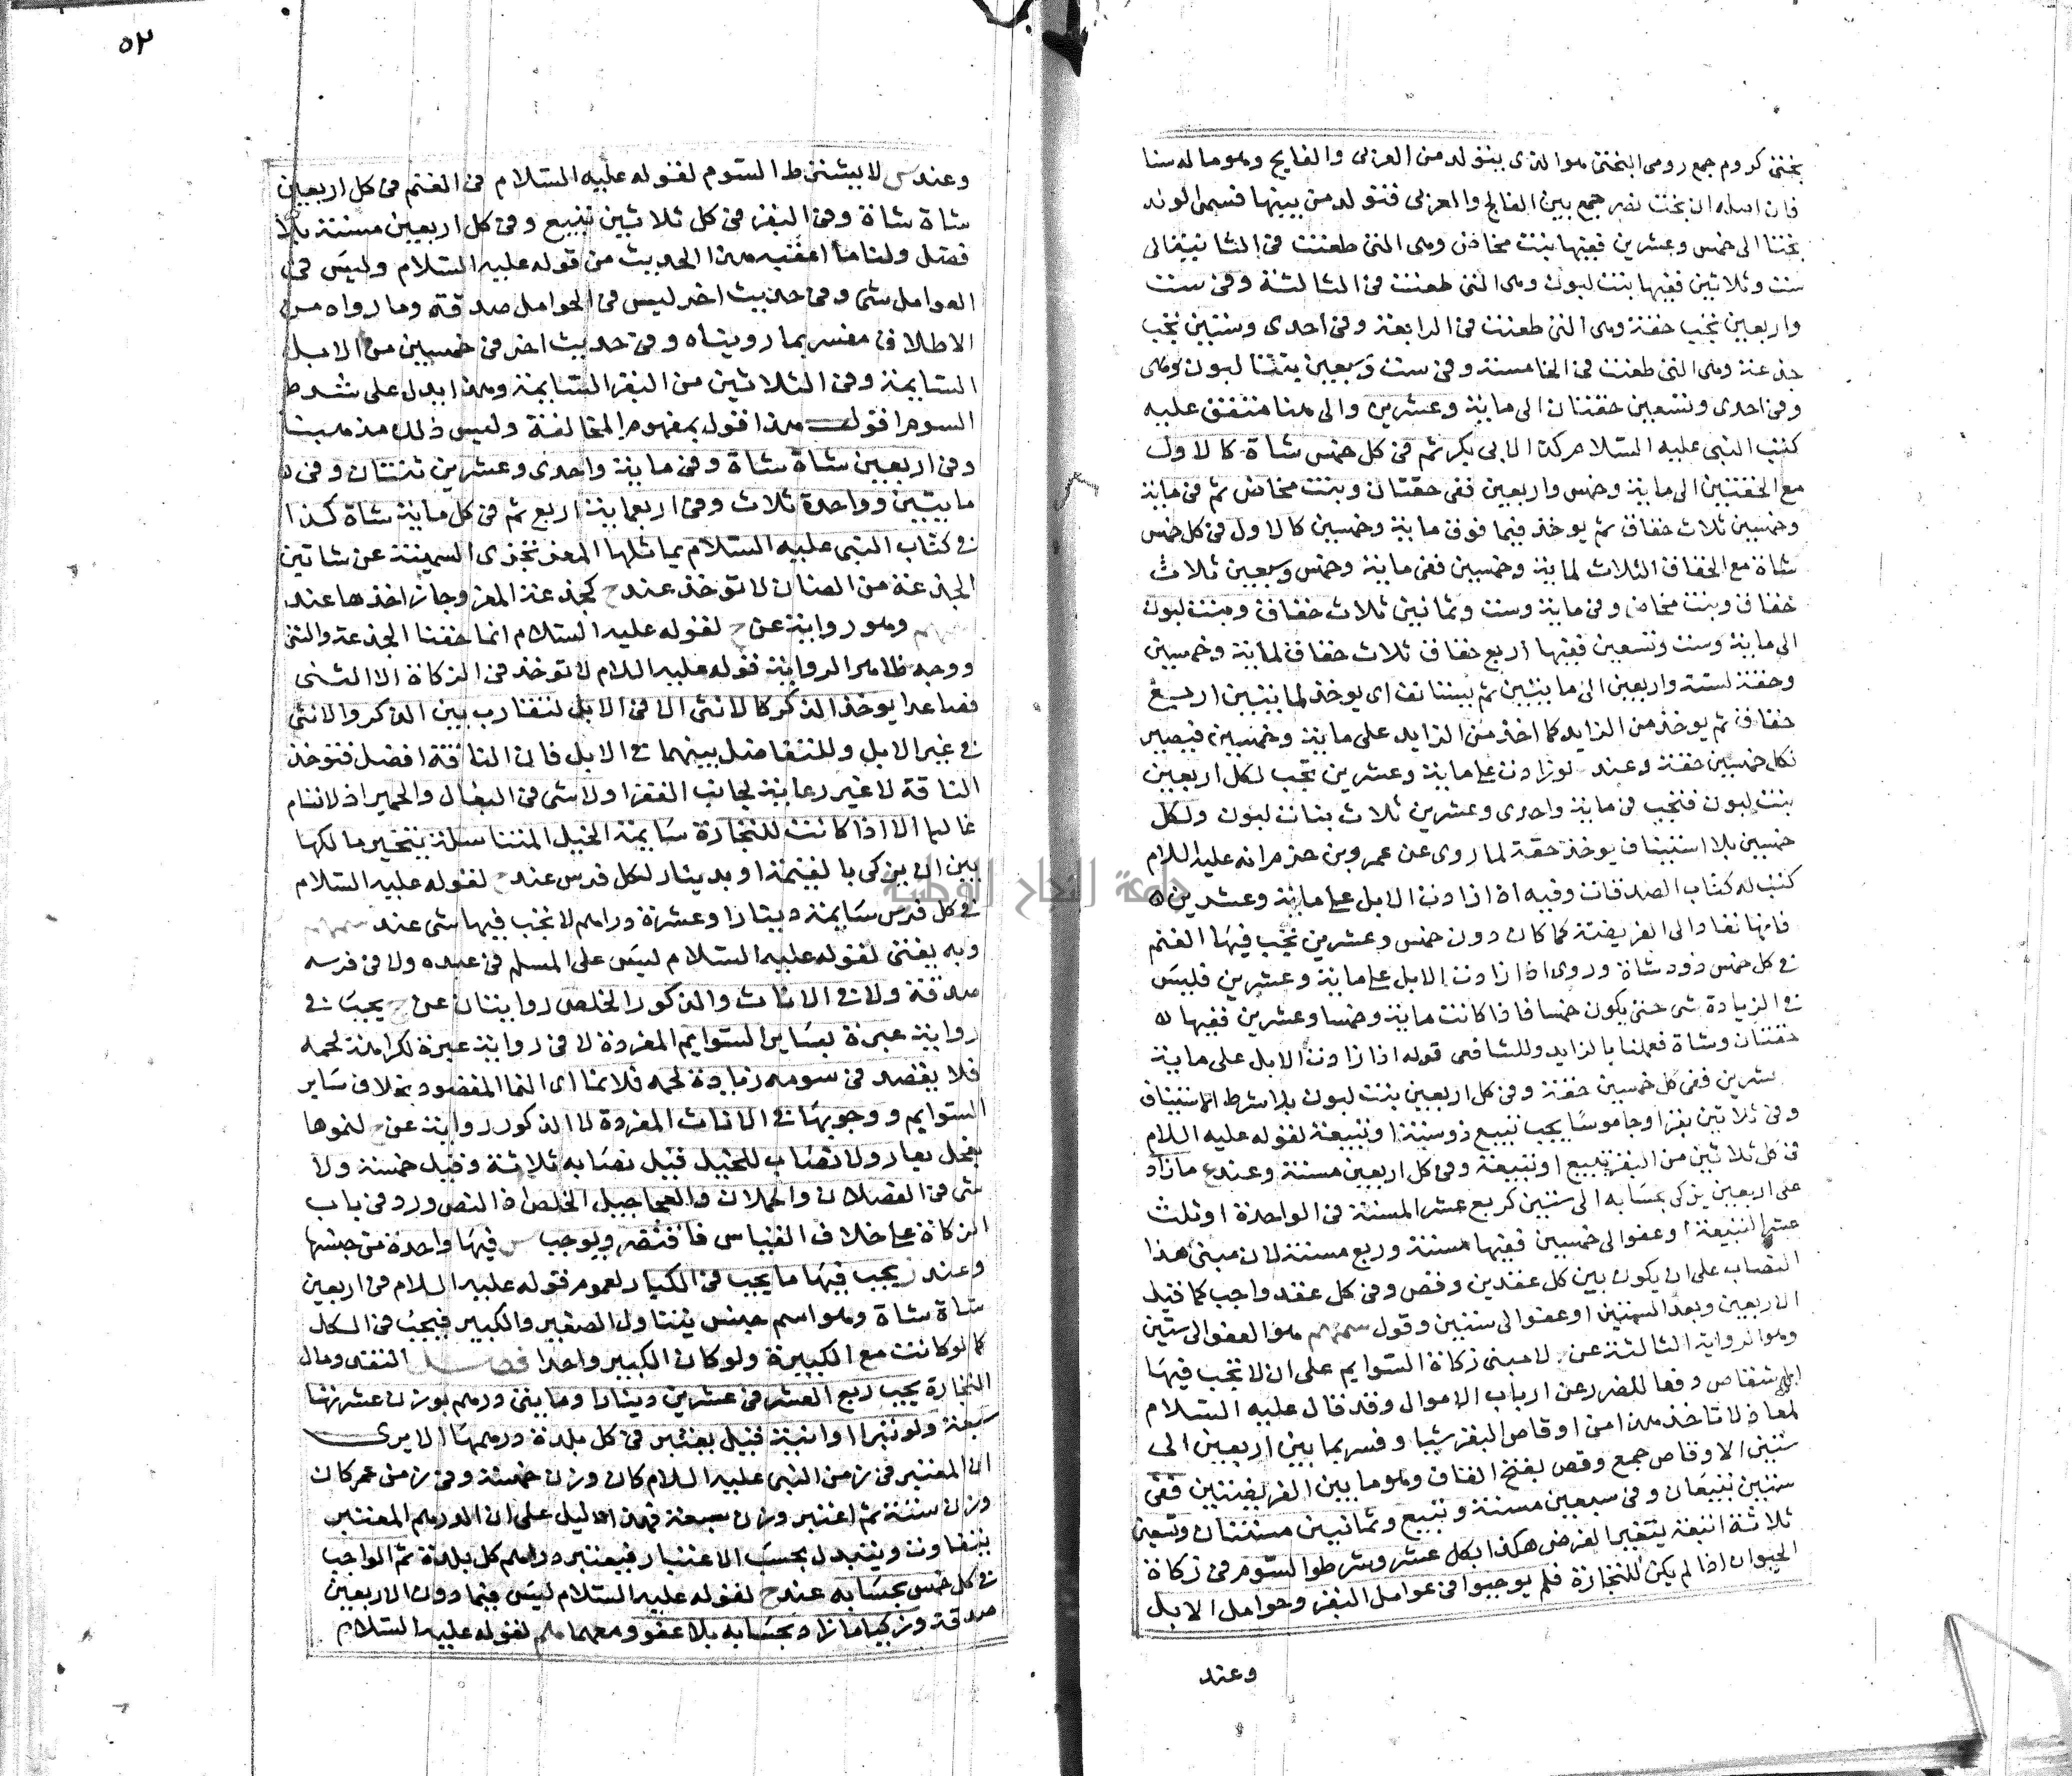 بختى كروم جمع رومى البختى هو الذى يتولد من العربى والفالج وهو ماله سنا
فان اسله ان بخت نصر جمع بين الفالج والعربى فتولد من بينهما فسمى الولد
بختيا الى خمس وعشرين ففيها بنت مخاض وهى التى طعنت فى الثانية الى
ست وثلاثين ففيها بنت لبون وهى التى طعنت فى الثالثة وفى ست
واربعين تجب حقة وهى التى طعنت فى الرابعة وفى احدى وستين تجب
جذعة وهى التى طعنت فى الخامسة وفى ست وسبعين بنتا لبون وهى
وفى احدى وتسعين حقتان الى ماية وعشرين والى هنا متفق عليه
كتب النبى عليه السلام كذا الابى بكر ثم فى كل خمس شاة كالاول
مع الحقتين الى ماية وخمس واربعين ففى حقتان وبنت مخاض ثم فى ماية
وخمسين ثلاث حقاق ثم يوخذ فيما فوق ماية وخمسين كالاول فى كل خمس
شاة مع الحقاق الثلاث لماية وخمسين ففى ماية وخمس وسبعين ثلاث
حقاق وبنت مخاض وفى ماية وست وثمانين ثلاث حقاق وبنت لبون
الى ماية وست وتسعين ففيها اربع حقاق ثلاث حقاق لماية وخمسين
وحقة لستة واربعين الى مايتين ثم يستانف اى يوخذ لمايتين اربع
حقاق ثم يوخذ من الزايد كما اخذ من الزايد على ماية وخمسين فيصير
لكل خمسين حقة وعند لو زادت على ماية وعشرين تجب لكل اربعين
بنت لبون فتجب فى ماية واحدى وعشرين ثلاث بنات لبون ولكل
خمسين بلا استيناف يوخذ حقة لما روى عن عمرو بن حزم انه عليه السلام
كتب له كتاب الصدقات وفيه اذا زادت الابل على ماية وعشرين
فانها تعاد الى الفريضة كما كان دون خمس وعشرين تجب فيها الغنم
فى كل خمس ذود شاة وروى اذا زادت الابل على ماية وعشرين فليس
فى الزيادة شى حتى يكون خمسا فاذا كانت ماية وخمسا وعشرين ففيها
حقتان وشاة فعملنا بالزايد وللشافعى قوله اذا زادت الابل على ماية
عشرين ففى كل خمسين حقة وفى كل اربعين بنت لبون بلا شرط الاستيناف
وفى ثلاثين بقرا وجاموسا يجب تبيع ذو سنة او تبيعة لقوله عليه السلام
فى كل ثلاثين من البقر تبيع او تبيعة وفى كل اربعين مسنة وعند ما زاد
على اربعين يزكى بحسابه الى ستين كربع عشر المسنة فى الواحدة او ثلث
عشر التبيعة او عفو الى خمسين ففيها مسنة وربع مسنة لان مبنى هذا
النصاب على ان يكون بين كل عقدين وقص وفى كل عقد واجب كما قبل
الاربعين وبعد الستين او عفو الى ستين وقول هو العفو الى ستين
وهو الرواية الثالثة عن لا مبنى زكاة السوايم على ان لا تجب فيها
اشقاص دفعا للضرر عن ارباب الاموال وقد قال عليه السلام
لمعاذ لا تاخذ من اوقاص البقر شيا وفسر بما بين اربعين الى
ستين الاوقاص جمع وقص بفتح القاف وهو ما بين الفريضتين ففى
ستين تبيعان وفى سبعين مسنة وتبيع وثمانين مسنتان وتسعين
ثلاثة اتبعة يتغير الفرض هكذا بكل عشر وشرطوا السوم فى زكاة
الحيوان اذا لم يكن للتجارة فلم يوجبوا فى عوامل البقر وحوامل الابل
وعند
٥٢
وعند لا يشترط السوم لقوله عليه السلام فى الغنم فى كل اربعين
شاة شاة وفى البقر فى كل ثلاثين تبيع وفى كل اربعين مسنة بلا
فصل ولنا ما اعقب هذا الحديث من قوله عليه السلام وليس فى
العوامل شى وفى حديث اخر ليس فى الحوامل صدقة وما رواه من
الاطلاق مفسر بما رويناه وفى حديث اخر فى خمسين من الابل
السايمة وفى الثلاثين من البقر السايمة وهذا يدل على شرط
السوم اقول هذا قول بمفهوم المخالفة وليس ذلك مذهبنا
وفى اربعين شاة شاة وفى ماية واحدى وعشرين ثنتان وفى
مايتين وواحدة ثلاث وفى اربعماية اربع ثم فى كل ماية شاة كذا
فى كتاب النبى عليه السلام يماثلها المعز تجزى السمينة عن شاتين
الجذعة من الضان لا توخذ عند كجذعة المعز وجاز اخذها عند
وهو رواية عن لقوله عليه السلام انما حقنا الجذعة والثنى
ووجه ظاهر الرواية قوله عليه السلام لا توخذ فى الزكاة الا الثنى
فصاعدا يوخذ الذكر كالانثى الا فى الابل لتقارب بين الذكر والانثى
فى غير الابل وللتفاضل بينهما فى الابل فان الناقة افضل فتوخذ
الناقة لا غير رعاية لجانب الفقرا ولا شى فى البغال والحمير اذ لا تسام
غالبا الا اذا كانت للتجارة سايمة الخيل المتناسلة يتخير مالكها
بين ان يزكى بالقيمة او بدينار لكل فرس عند لقوله عليه السلام
فى كل فرس سايمة دينارا وعشرة دراهم لا تجب فيها شى عند
وبه يفتى لقوله عليه السلام ليس على المسلم فى عبده ولا فى فرسه
صدقة ولا فى الاناث والذكور الخلص روايتان عن يجب فى
رواية عبرة بساير السوايم المفردة لا فى رواية عبرة لكرامة لحمه
فلا يقصد فى سومه زيادة لحمه فلا نما اى النما المقصود بخلاف ساير
السوايم ووجوبها فى الاناث المفردة لا الذكور رواية عن لنموها
بفحل يعار ولا نصاب للخيل قيل نصابه ثلاثة وقيل خمسة ولا
شى فى الفصلان والحملان والعجاجيل الخلص اذ النص ورد فى باب
الزكاة على خلاف القياس فاقتصر ويوجب فيها واحدة من جنسها
وعند يجب فيها ما يجب فى الكبار لعموم قوله عليه السلام فى اربعين
شاة شاة وهو اسم جنس يتناول الصغير والكبير فيجب فى الكل
كما لو كانت مع الكبيرة ولو كان الكبير واحدا فصل النقد ومال
التجارة يجب ربع العشر فى عشرين دينارا ومايتى درهم بوزن عشرتها
سبعة ولو تبرا او انية قيل يعتبر فى كل بلدة درهمها الا يرى
ان المعتبر فى زمن النبى عليه السلام كان وزن خمسة وفى زمن عمر كان
وزن ستة ثم اعتبر وزن سبعة فهذا دليل على ان الدرهم المعتبر
يتفاوت ويتبدل بحسب الاعتبار فيعتبر دراهم كل بلدة ثم الواجب
فى كل خمس بحسابه عند لقوله عليه السلام ليس فيما دون الاربعين
صدقة وزكيا ما زاد بحسابه بلا عفو ومعهما لقوله عليه السلام
جامعة النجاح الوطنية